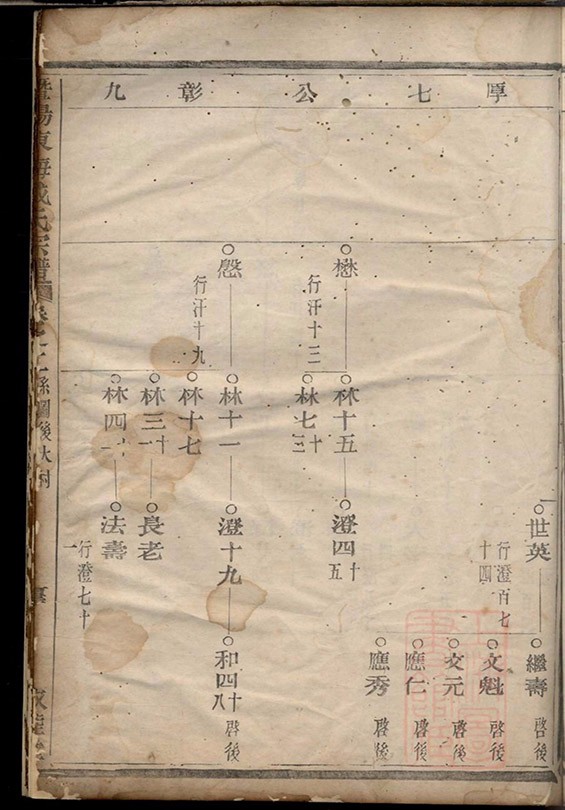 厚七公彰九
世英
行澄百七
十四
繼壽 啓後
文魁 啓後
文元 啓後
應仁 啓後
應秀 啓後
懋
行汗十三
林十五
澄四十五
林七十三
愍
行汗十九
林十一
澄十九
和四十八 啓後
林十七
林三十一
長老
林四十一
法壽
行澄七十
一
暨陽東海成氏宗譜
系圖後大村